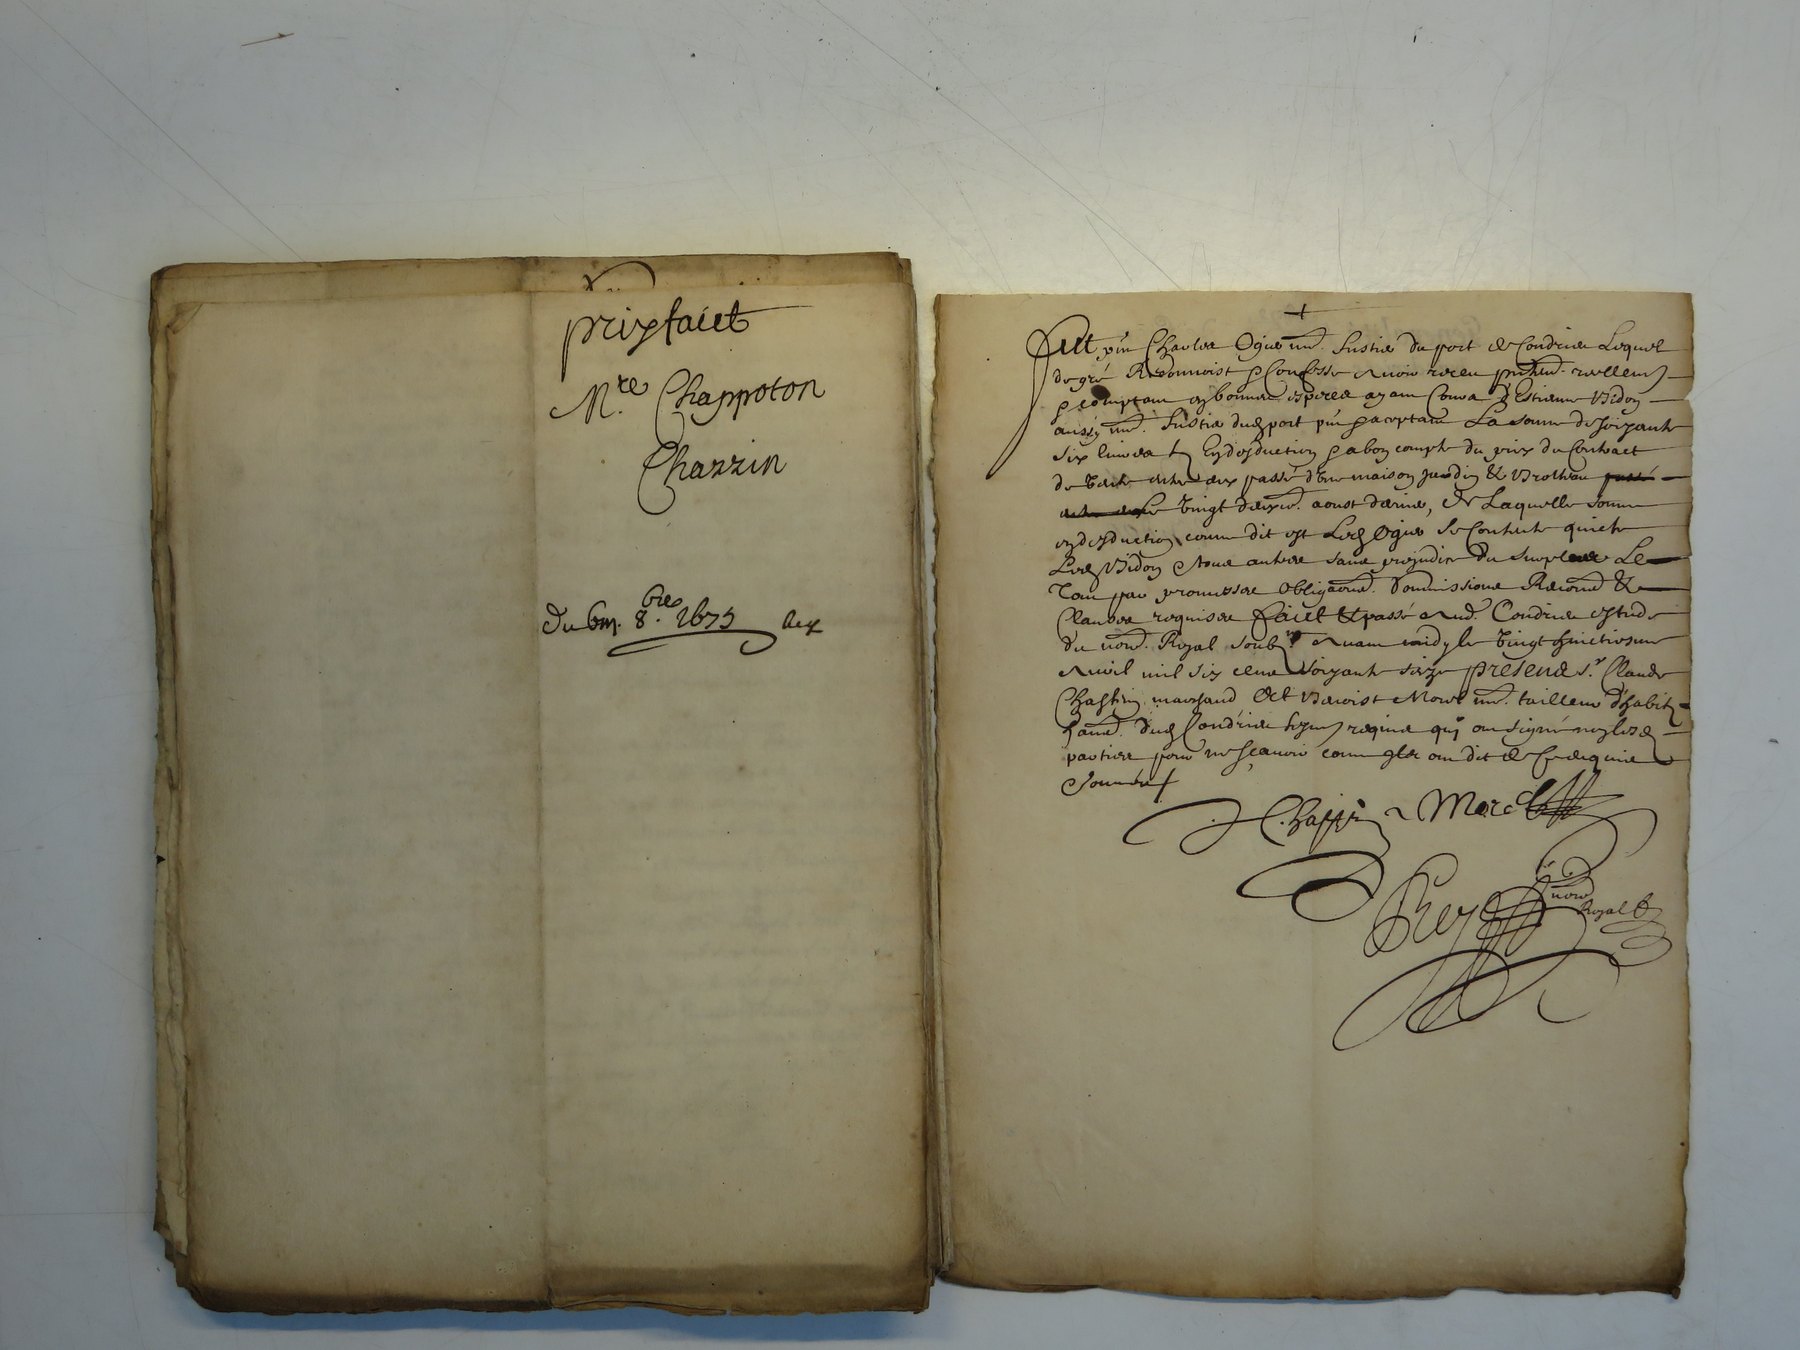 prixfaict
M.re Chappoton
Chazzin
du 6m. 8.bre 1675 Rex
Fut pnt Charles Ogier me. fustier du port de Condrieu Lequel
de gré Recognoist & Confesse avoir receu pntement reellemt
& comptant en bonnes especes ayant Cours d'Estienne Bidon
aussy me. fustier dud port pnt & aceptant La somme de soixante
six livres En desduction & a bon compte du prix du Contract
de vente entre eux passé d'une maison jardin & Brotteau passé
entre eux le vingt deuxe. aoust dernier, de Laquelle somme
en desduction comme dit est Led Ogier se Contente quicte
Led Bidon & tous autres sans prejudice du surplus Le
Tout par promesses obligaons. soumissions Renons &
Clauses requises faict & passé aud. Condrieu estude
du nore. Royal soubne avant midy le vingt huictiesme
avril mil six cens soixante seize presens sr. Claude
Chassin marchand Et Benoist Morel me. tailleur d'habitz
dud Condrieu tesmoins requis quy ont signé non lesd
parties pour ne sçavoir comme elles ont dit de ce enquis
& sommées
Chassin Morel
Rey nore Royal